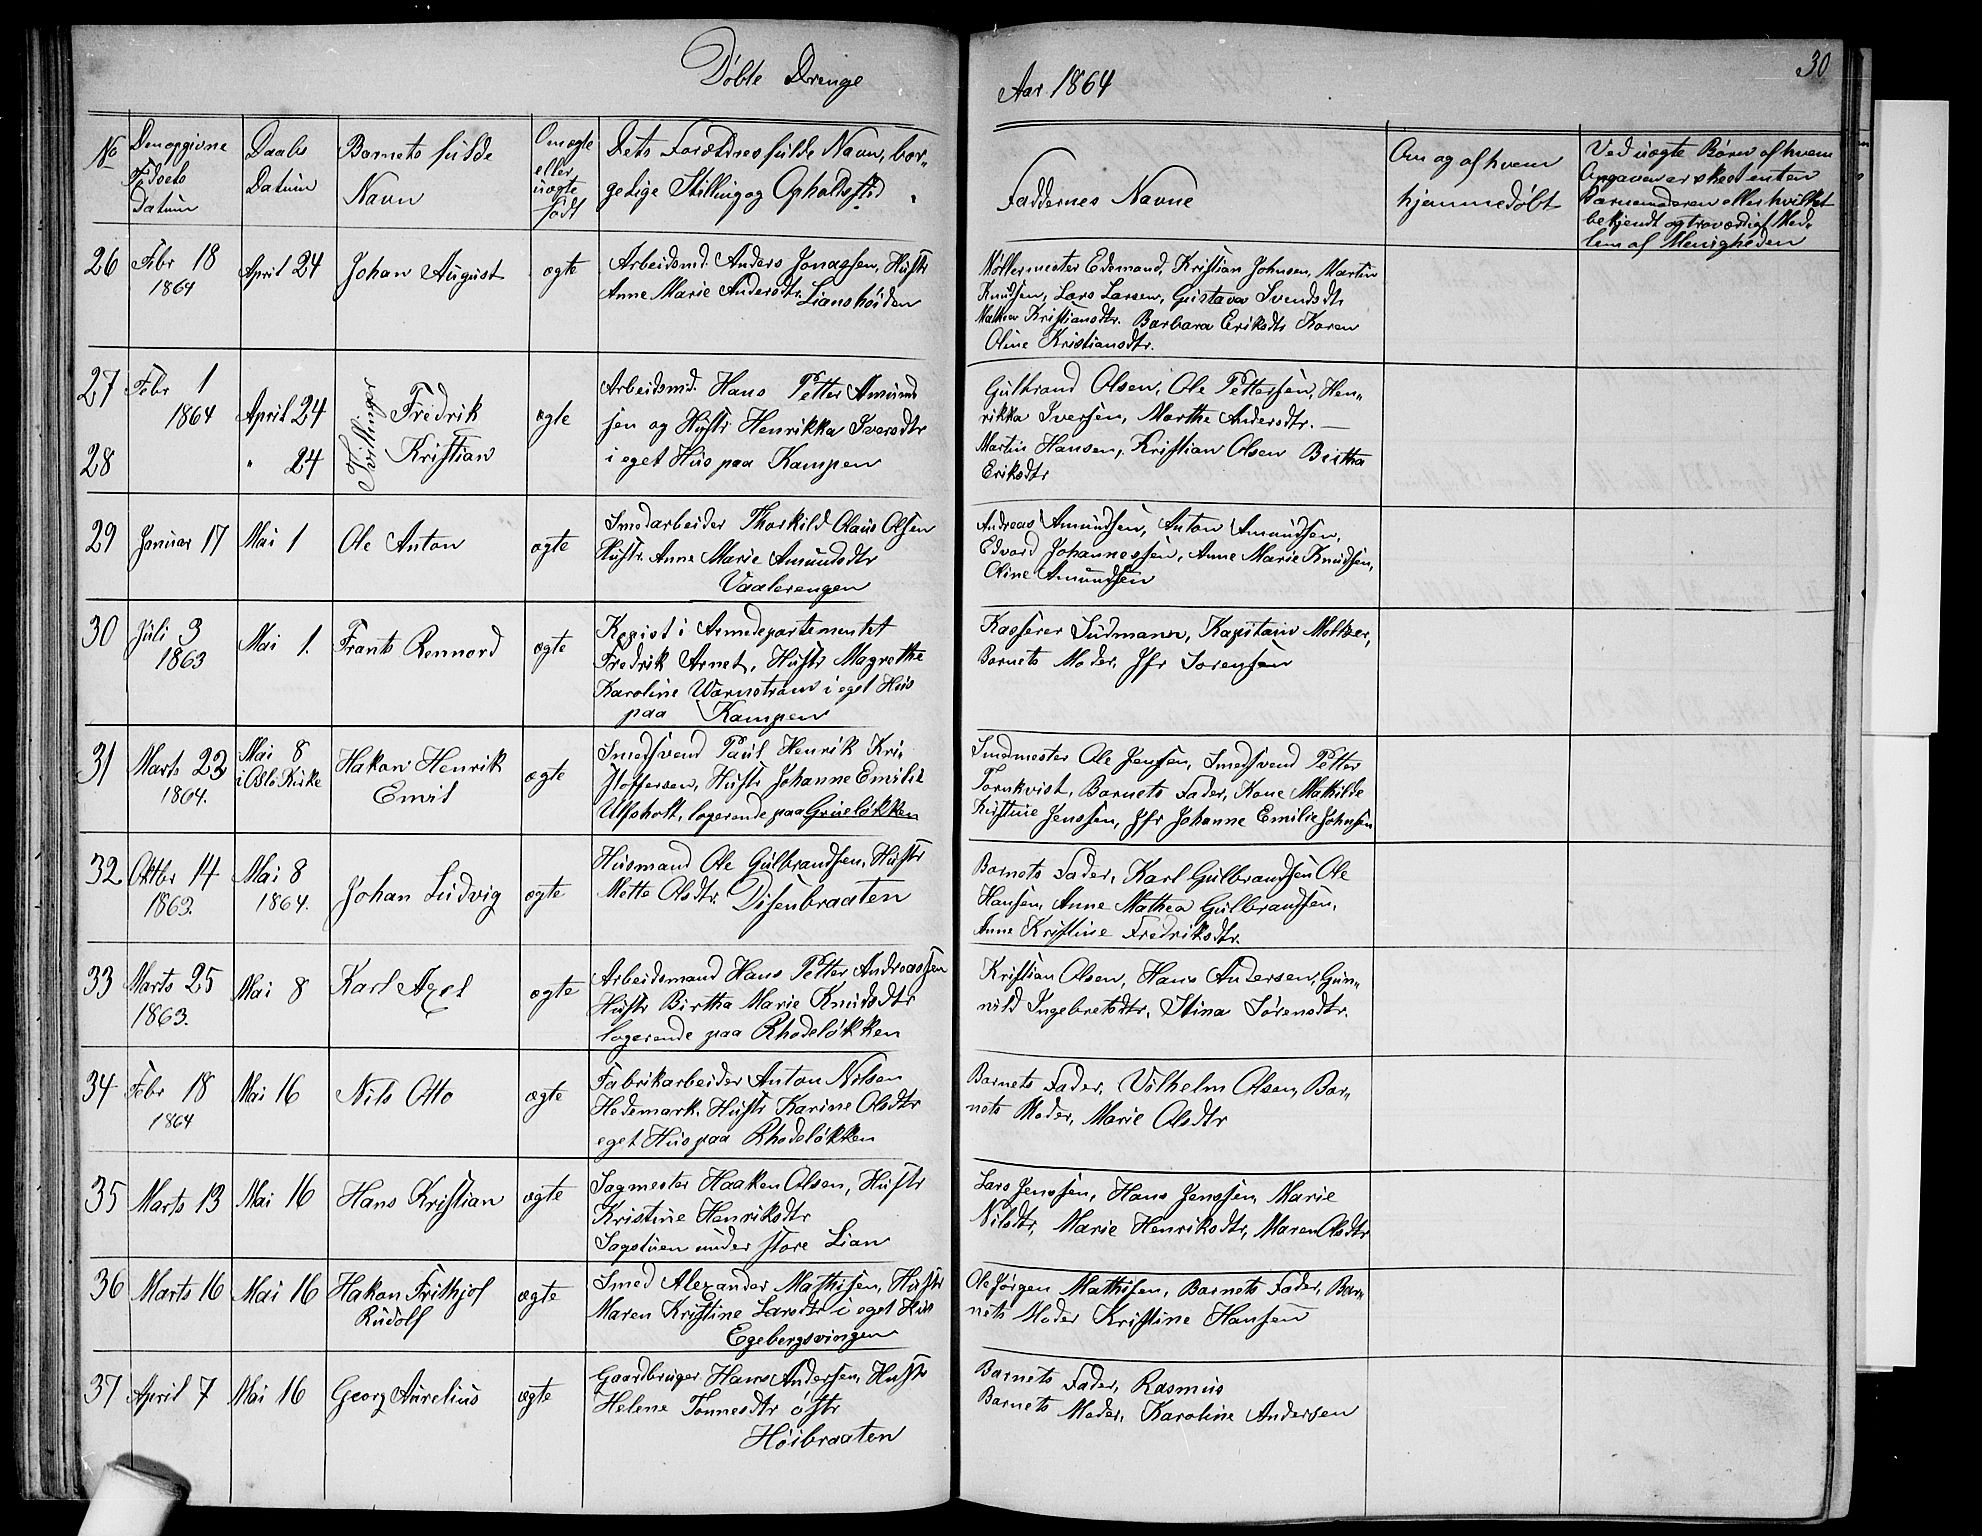 Døbte Drenge
No
Den opgivne
Fødsels
Datum
Daabs
Datum
Barnets fulde
Navn
Om ægte
eller
uægte
født
Dets Forældres fulde Navn, bor-
gerlige Stilling og Opholdssted
26
Febr 18
1864
April 24
Johan August
ægte
Arbeidsmd. Anders Jonassen, Hustr
Anne Marie Andersdtr. Lianshöiden
27
Febr 1
1864
April 24
Tvillinger
Fredrik
ægte
28
" 24
Kristian
Arbeidsmd. Hans Petter Amund
sen og Hustr Henrikka Iversdtr
i eget Huus paa Kampen
29
Januar 17
Mai 1
Ole Anton
ægte
Smedarbeider Thorkild Olaus Olsen
Hustr. Anne Marie Amundsdtr
Vaalerengen
30
Juli 3
1863
Mai 1.
Frants Rennord
ægte
Kopist i Armedepartementet
Fredrik Arnet, Hustr Magrethe
Karoline Warnstrøm i eget Hus
paa Kampen
31
Marts 22
1864.
Mai 8
i Oslo Kirke
Hakon Henrik
Emil
ægte
Smedsvend Paul Henrik Kri-
stoffersen, Hustr Johanne Emilie
Ulfsholt, logerende paa Grüeløkken
32
Oktbr 14
1863.
Mai 8
1864.
Johan Ludvig
ægte
Husmand Ole Gulbrandsen, Hustr
Mette Olsdtr. Disenbraaten
33
Marts 25
1863.
Mai 8
Karl Axel
ægte
Arbeidsmand Hans Petter Andreassen
Hustr Birtha Marie Knudsdtr
logerende paa Rhodeløkken
34
Febr 18
1864
Mai 16
Nils Otto
ægte
Fabrikarbeider Anton Nilsen
Hedemark, Hustr Karine Olsdtr
eget Hus paa Rhodeløkken
35
Marts 13
Mai 16
Hans Kristian
ægte
Sagmester Haaken Olsen, Hustr
Kristine Henriksdtr
Sagstuen under store Lian
36
Marts 16
Mai 16
Hakon Frithjof
Rudolf
ægte
Smed Alexander Mathisen, Hustr
Maren Kristine Larsdtr i eget Hus
Egebergsvingen
37
April 7
Mai 16
Georg Aurelius
ægte
Gaardbruger Hans Andersen, Hustr
Helene Tønnesdtr østr
Höibraaten
Aar 1864
30
Faddernes Navne
Om og af hvem
hjemmedøbt
Ved uægte Børn af hvem
Opgaven er skeet enten
Barnemoderen eller hvilket
bekjendt og troværdigt Med-
lem af Menigheden
Møllermester Edemand, Kristian Johnsen, Martin
Knudsen, Lars Larsen, Gustava Svendsdtr
Mathea Kristiansdtr. Barbara Eriksdtr Karen
Oline Kristiansdtr.
Gulbrand Olsen, Ole Pettersen, Hen-
rikka Iversen, Marthe Andersdtr. —
Martin Hansen, Kristian Olsen Birtha
Eriksdtr
Andreas Amundsen, Anton Amundsen,
Edvard Johannessen, Anne Marie Knudsen,
Oline Amundsen
Kasserer Sudmann, Kapitain Moltzer,
Barnets Moder, Jfr Sørensen
Smedmester Ole Jenssen, Smedsvend Petter
Tornkvist, Barnets Fader, Kone Mathilde
Kristine Jenssen, Jfr Johanne Emilie Johnsen
Barnets Fader, Karl Gulbrandsen Ole
Hansen, Anne Mathea Gulbrandsen,
Anne Kristine Fredriksdtr.
Kristian Olsen, Hans Andersen, Gun-
nild Ingebretsdtr, Stina Sørensdtr.
Barnets Fader, Vilhelm Olsen, Bar-
nets Moder, Marie Olsdtr
Lars Jenssen, Hans Jenssen, Marie
Nilsdtr, Marie Henriksdtr, Maren Olsdtr
Ole Jørgen Mathisen, Barnets Fader, Bar-
nets Moder Kristine Hansen
Barnets Fader, Rasmus
Barnets Moder, Karoline Andersen